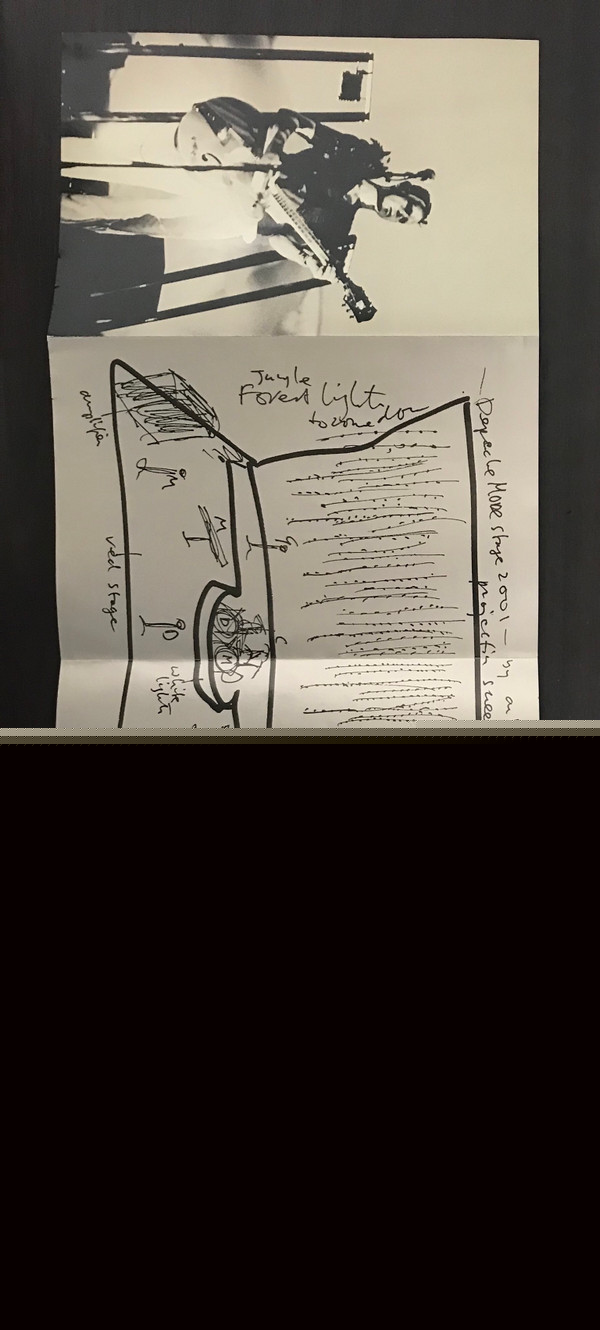 — Depeche Mode stage 2001 — by
projection
Jungle
Forest light
to come down
M
M
D
D
M
C
white
lights
red stage
amplifier